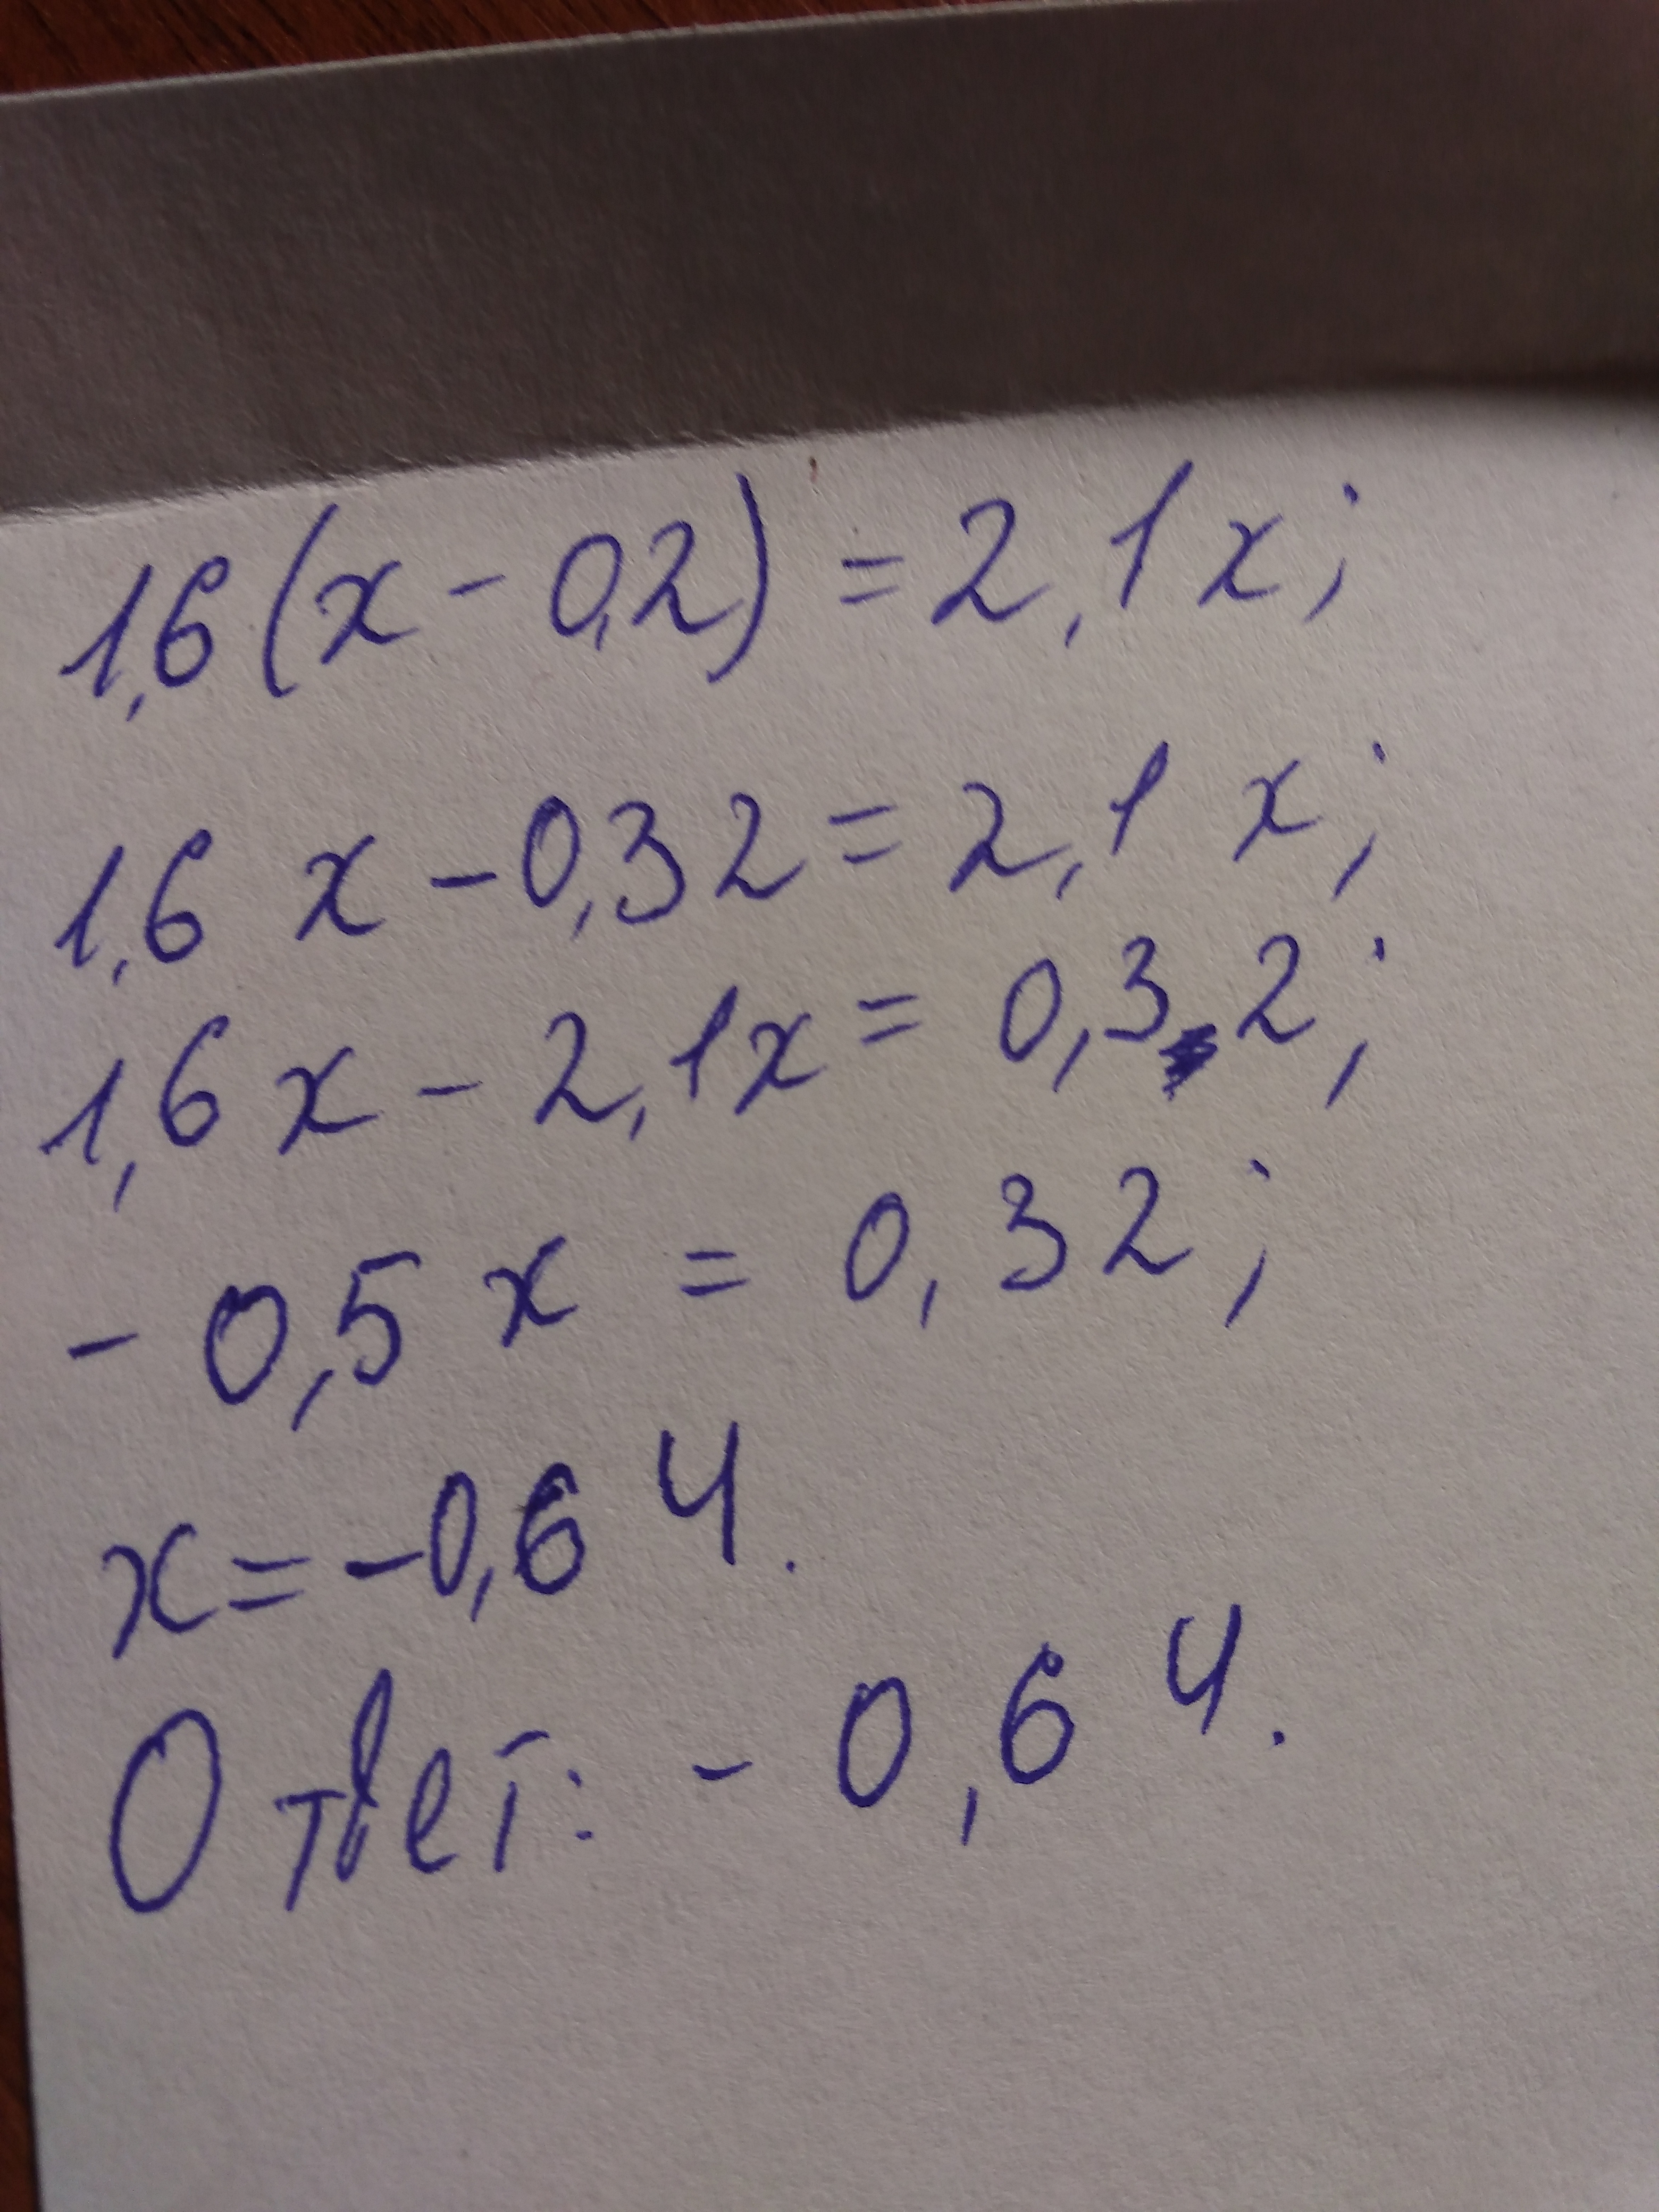 1,6(x - 0,2) = 2,1x;
1,6 x - 0,32 = 2,1 x;
1,6x - 2,1x = 0,32;
- 0,5x = 0,32;
x = -0,64.
Ответ: - 0,64.